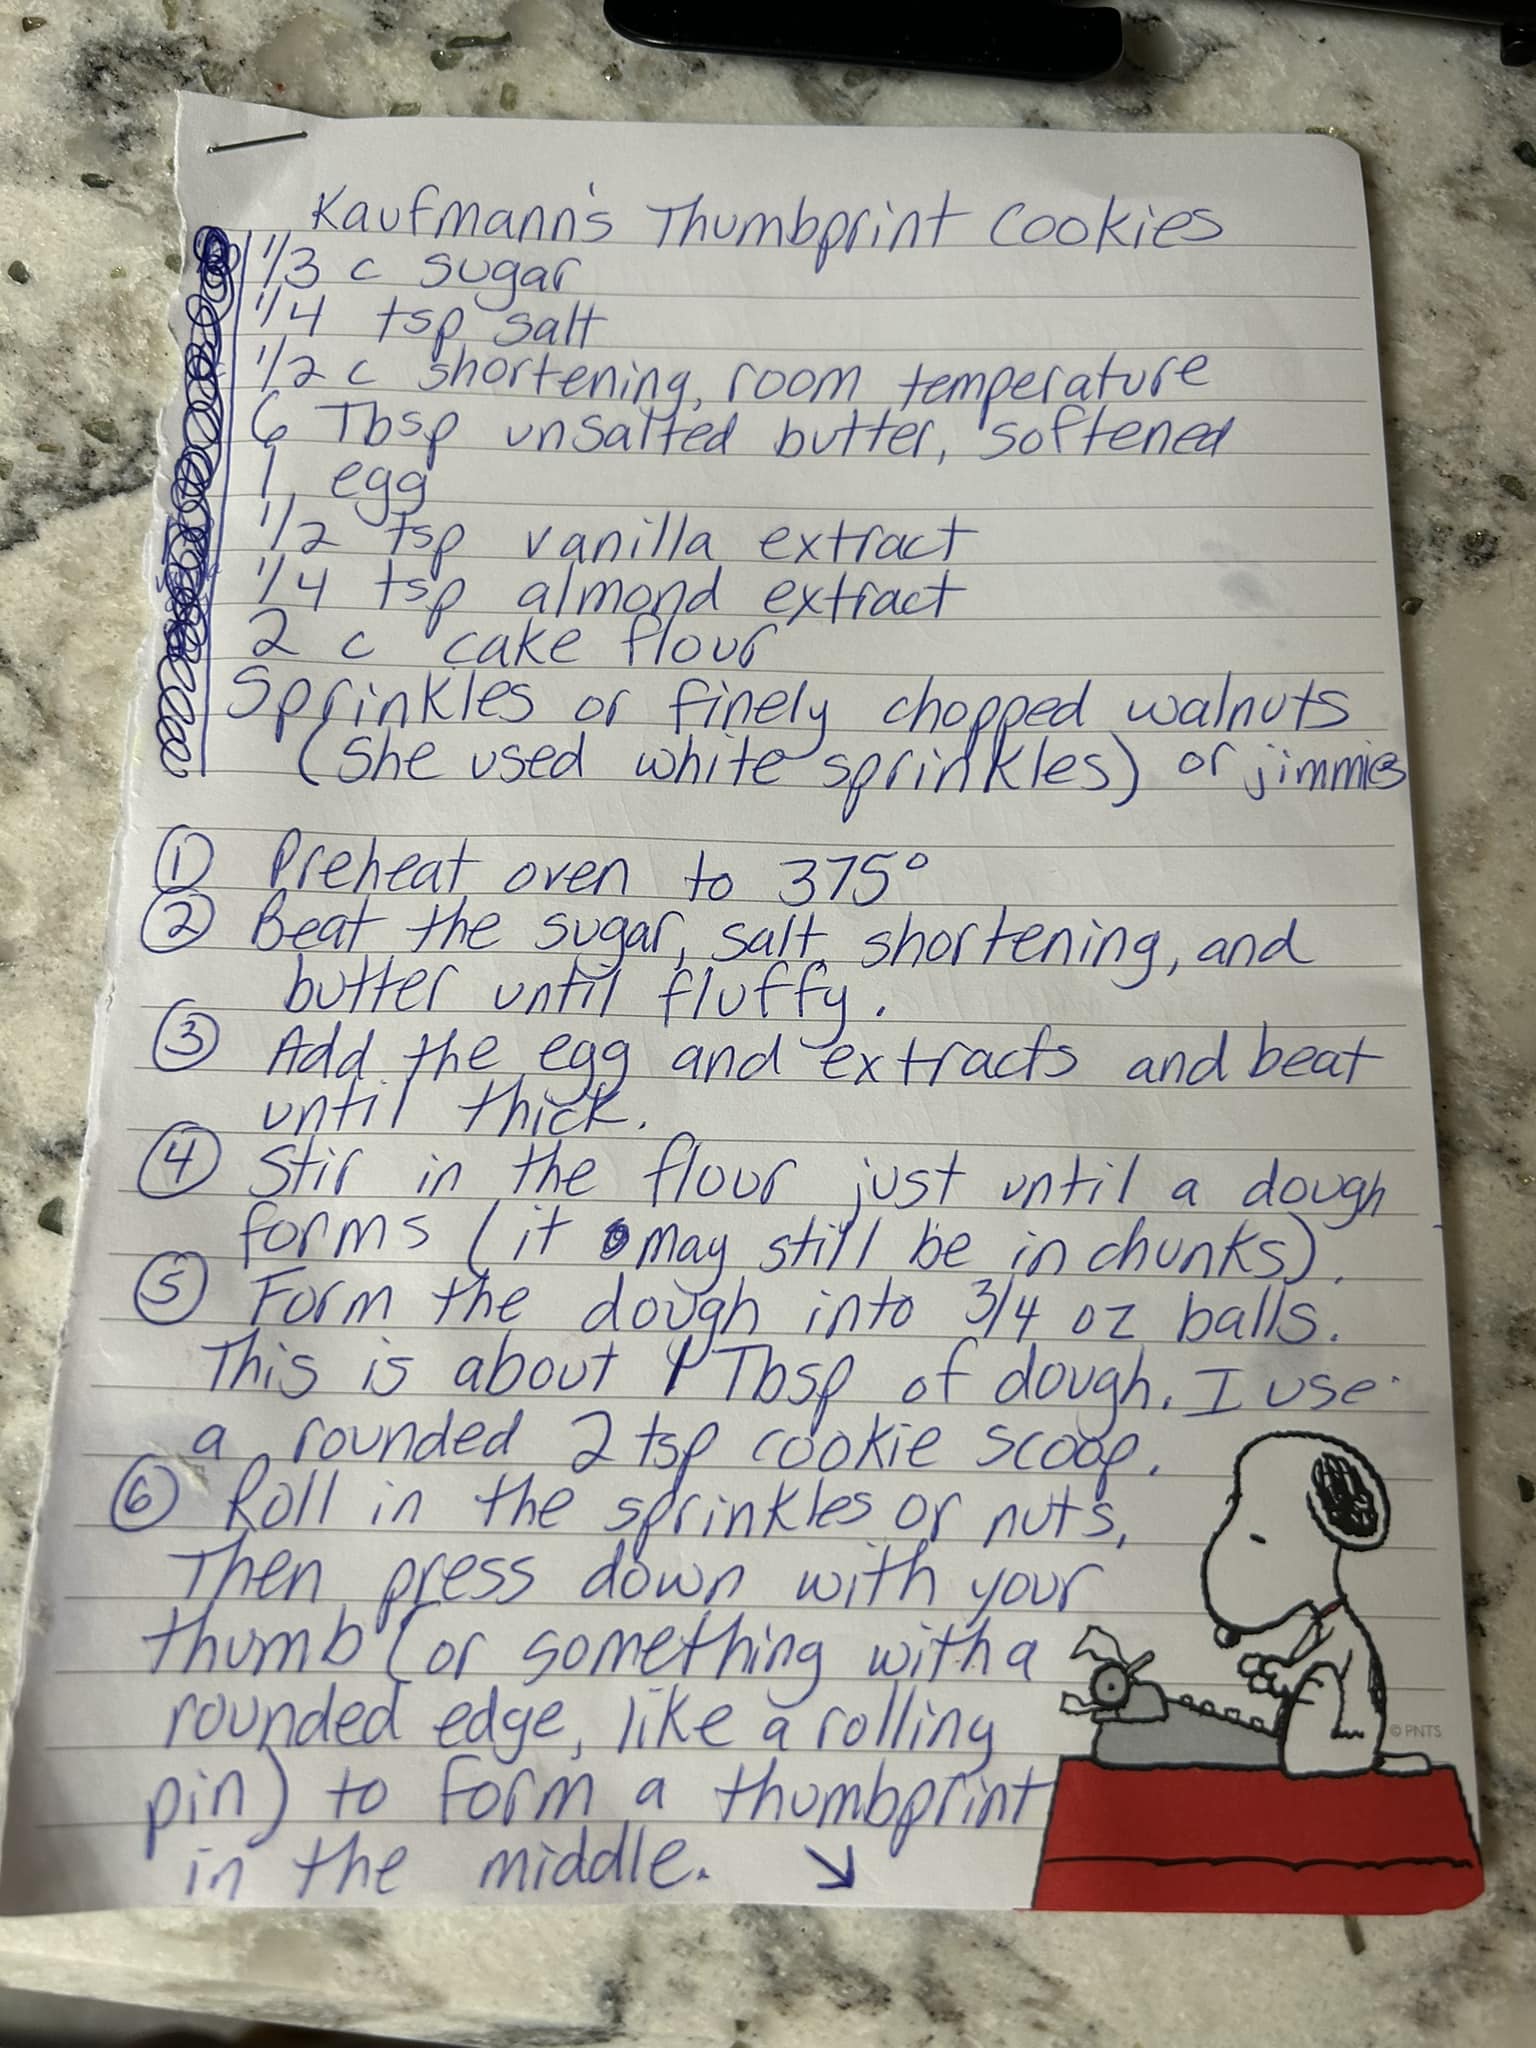 Kaufmann's Thumbprint Cookies
1/3 c sugar
1/4 tsp salt
1/2 c shortening, room temperature
6 Tbsp unsalted butter, softened
1 egg
1/2 tsp vanilla extract
1/4 tsp almond extract
2 c cake flour
Sprinkles or finely chopped walnuts
(She used white sprinkles) or jimmies
① Preheat oven to 375°
② Beat the sugar, salt, shortening, and
butter until fluffy.
③ Add the egg and extracts and beat
until thick.
④ Stir in the flour just until a dough
forms (it may still be in chunks).
⑤ Form the dough into 3/4 oz balls.
This is about 1 Tbsp of dough. I use
a rounded 2 tsp cookie scoop.
⑥ Roll in the sprinkles or nuts,
Then press down with your
thumb (or something with a
rounded edge, like a rolling
pin) to form a thumbprint
in the middle. ↘
© PNTS